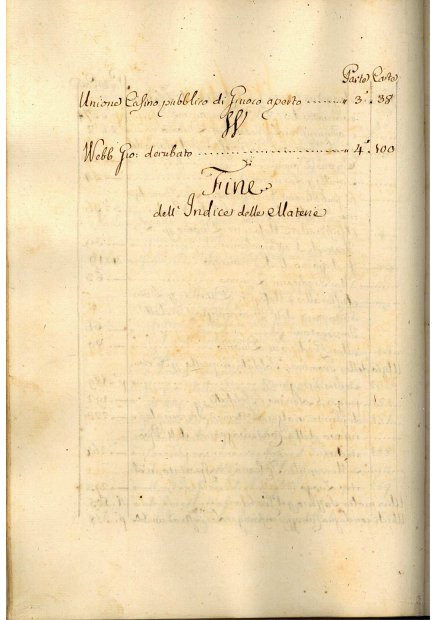 Parte Carte
Unione Casino pubblico di Giuoco aperto ........ " 3ª. 38
W
Webb Gio: derubato ........................ " 4ª. 100
Fine
dell' Indice delle Materie